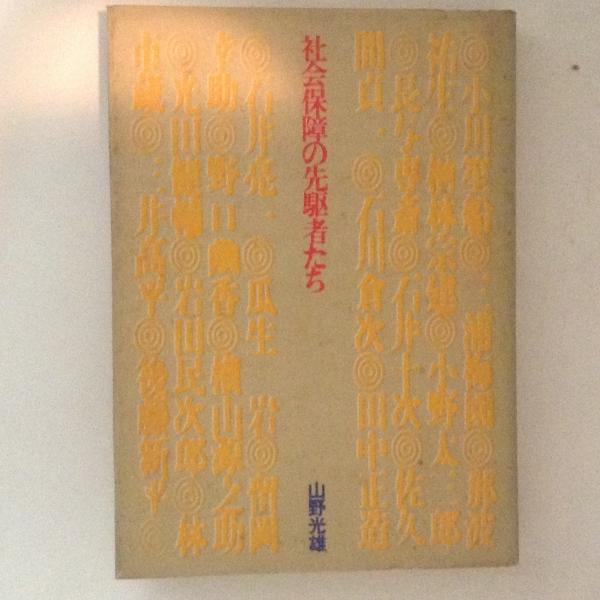 ◎小川笙船◎三浦梅園◎那波
祐生◎楢林宗建◎小野太三郎
◎長与専斎◎石井十次◎佐久
間貞一◎石川倉次◎田中正造
社会保障の先駆者たち
山野光雄
◎石井亮一◎瓜生 岩◎留岡
幸助◎野口幽香◎横山源之助
◎光田健輔◎岩田民次郎◎林
市蔵◎三井高平◎後藤新平◎